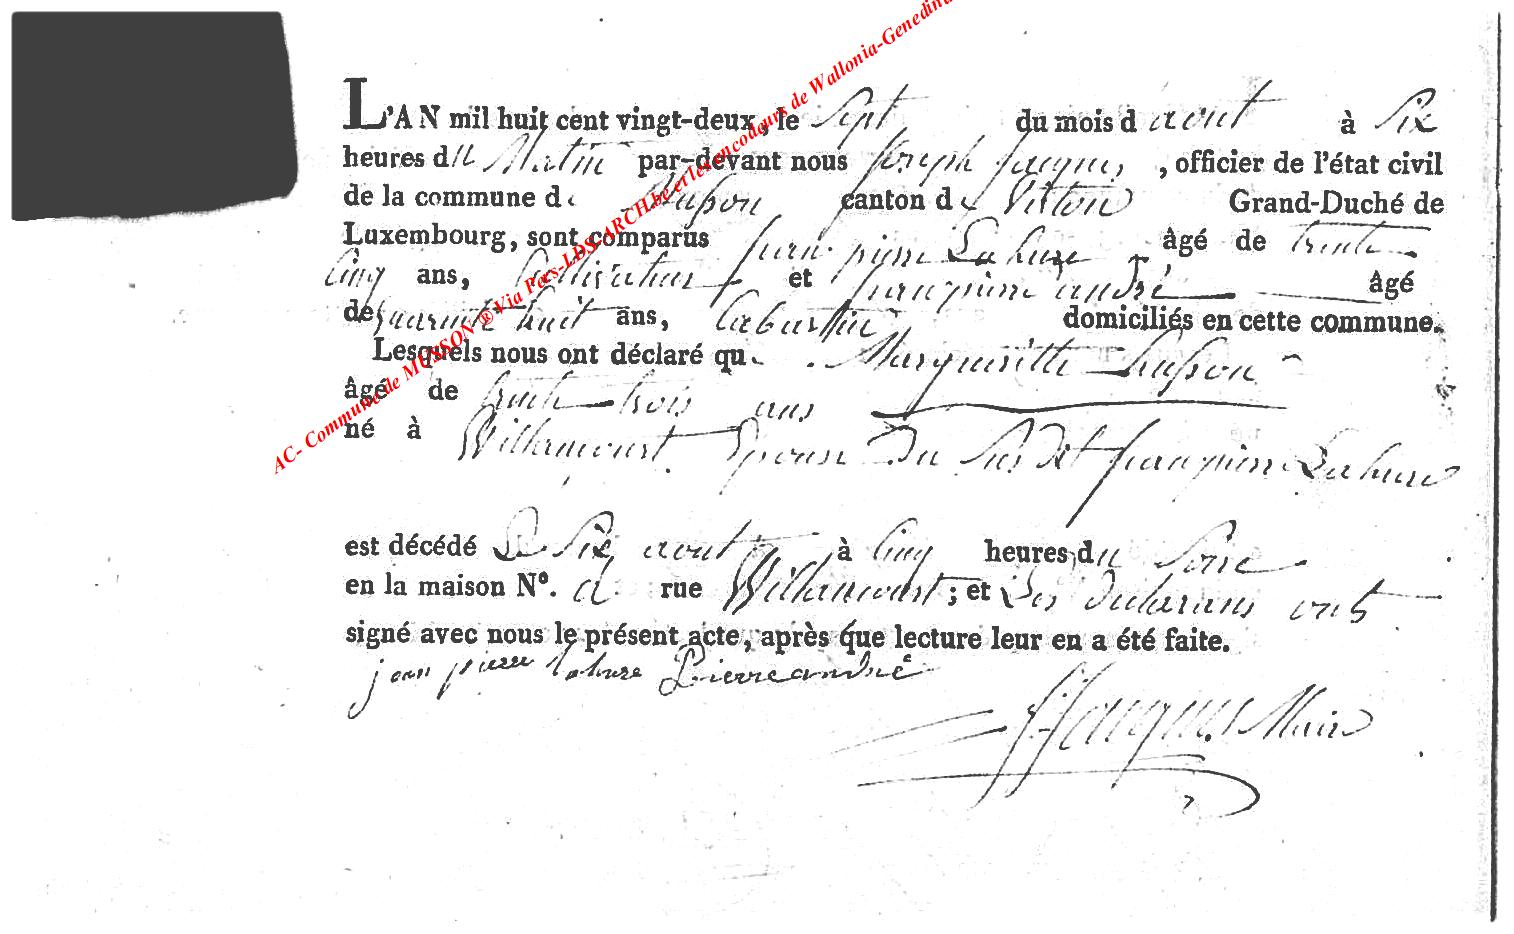 L'AN mil huit cent vingt-deux, le Sept du mois d aout à Six
heures du Matin par-devant nous Joseph Jacques, officier de l'état civil
de la commune de Musson canton de Virton Grand-Duché de
Luxembourg, sont comparus jean pierre Lahure âgé de trente
Cinq ans, Cultivateur et jean pierre andré âgé
de quarante huit ans, Cabartier domiciliés en cette commune.
Lesquels nous ont déclaré que Margueritte husson
âgé de trente trois ans
né à Willancourt Epouse Du Sus dit jean pierre Lahure
est décédé Le Six aout à Cinq heures du Soire
en la maison N°. a rue Willancourt ; et Les declarans ont
signé avec nous le présent acte, après que lecture leur en a été faite.
jean pierre lahure Pierre andré
J Jacques Maire
AC- Commune de MUSSON ® Via Pers-LDS-ARCH.be et les encodeurs de Wallonia-Genedina